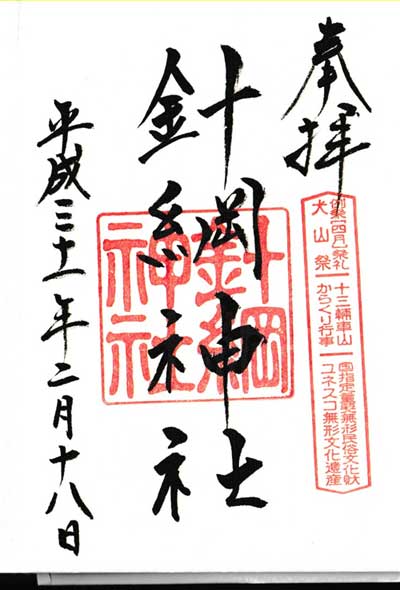 奉拝
例祭[四月]祭礼
犬山祭
十三輛車山
からくり行事
国指定重要無形民俗文化財
ユネスコ無形文化遺産
針綱神社
針綱神社
平成三十一年二月十八日